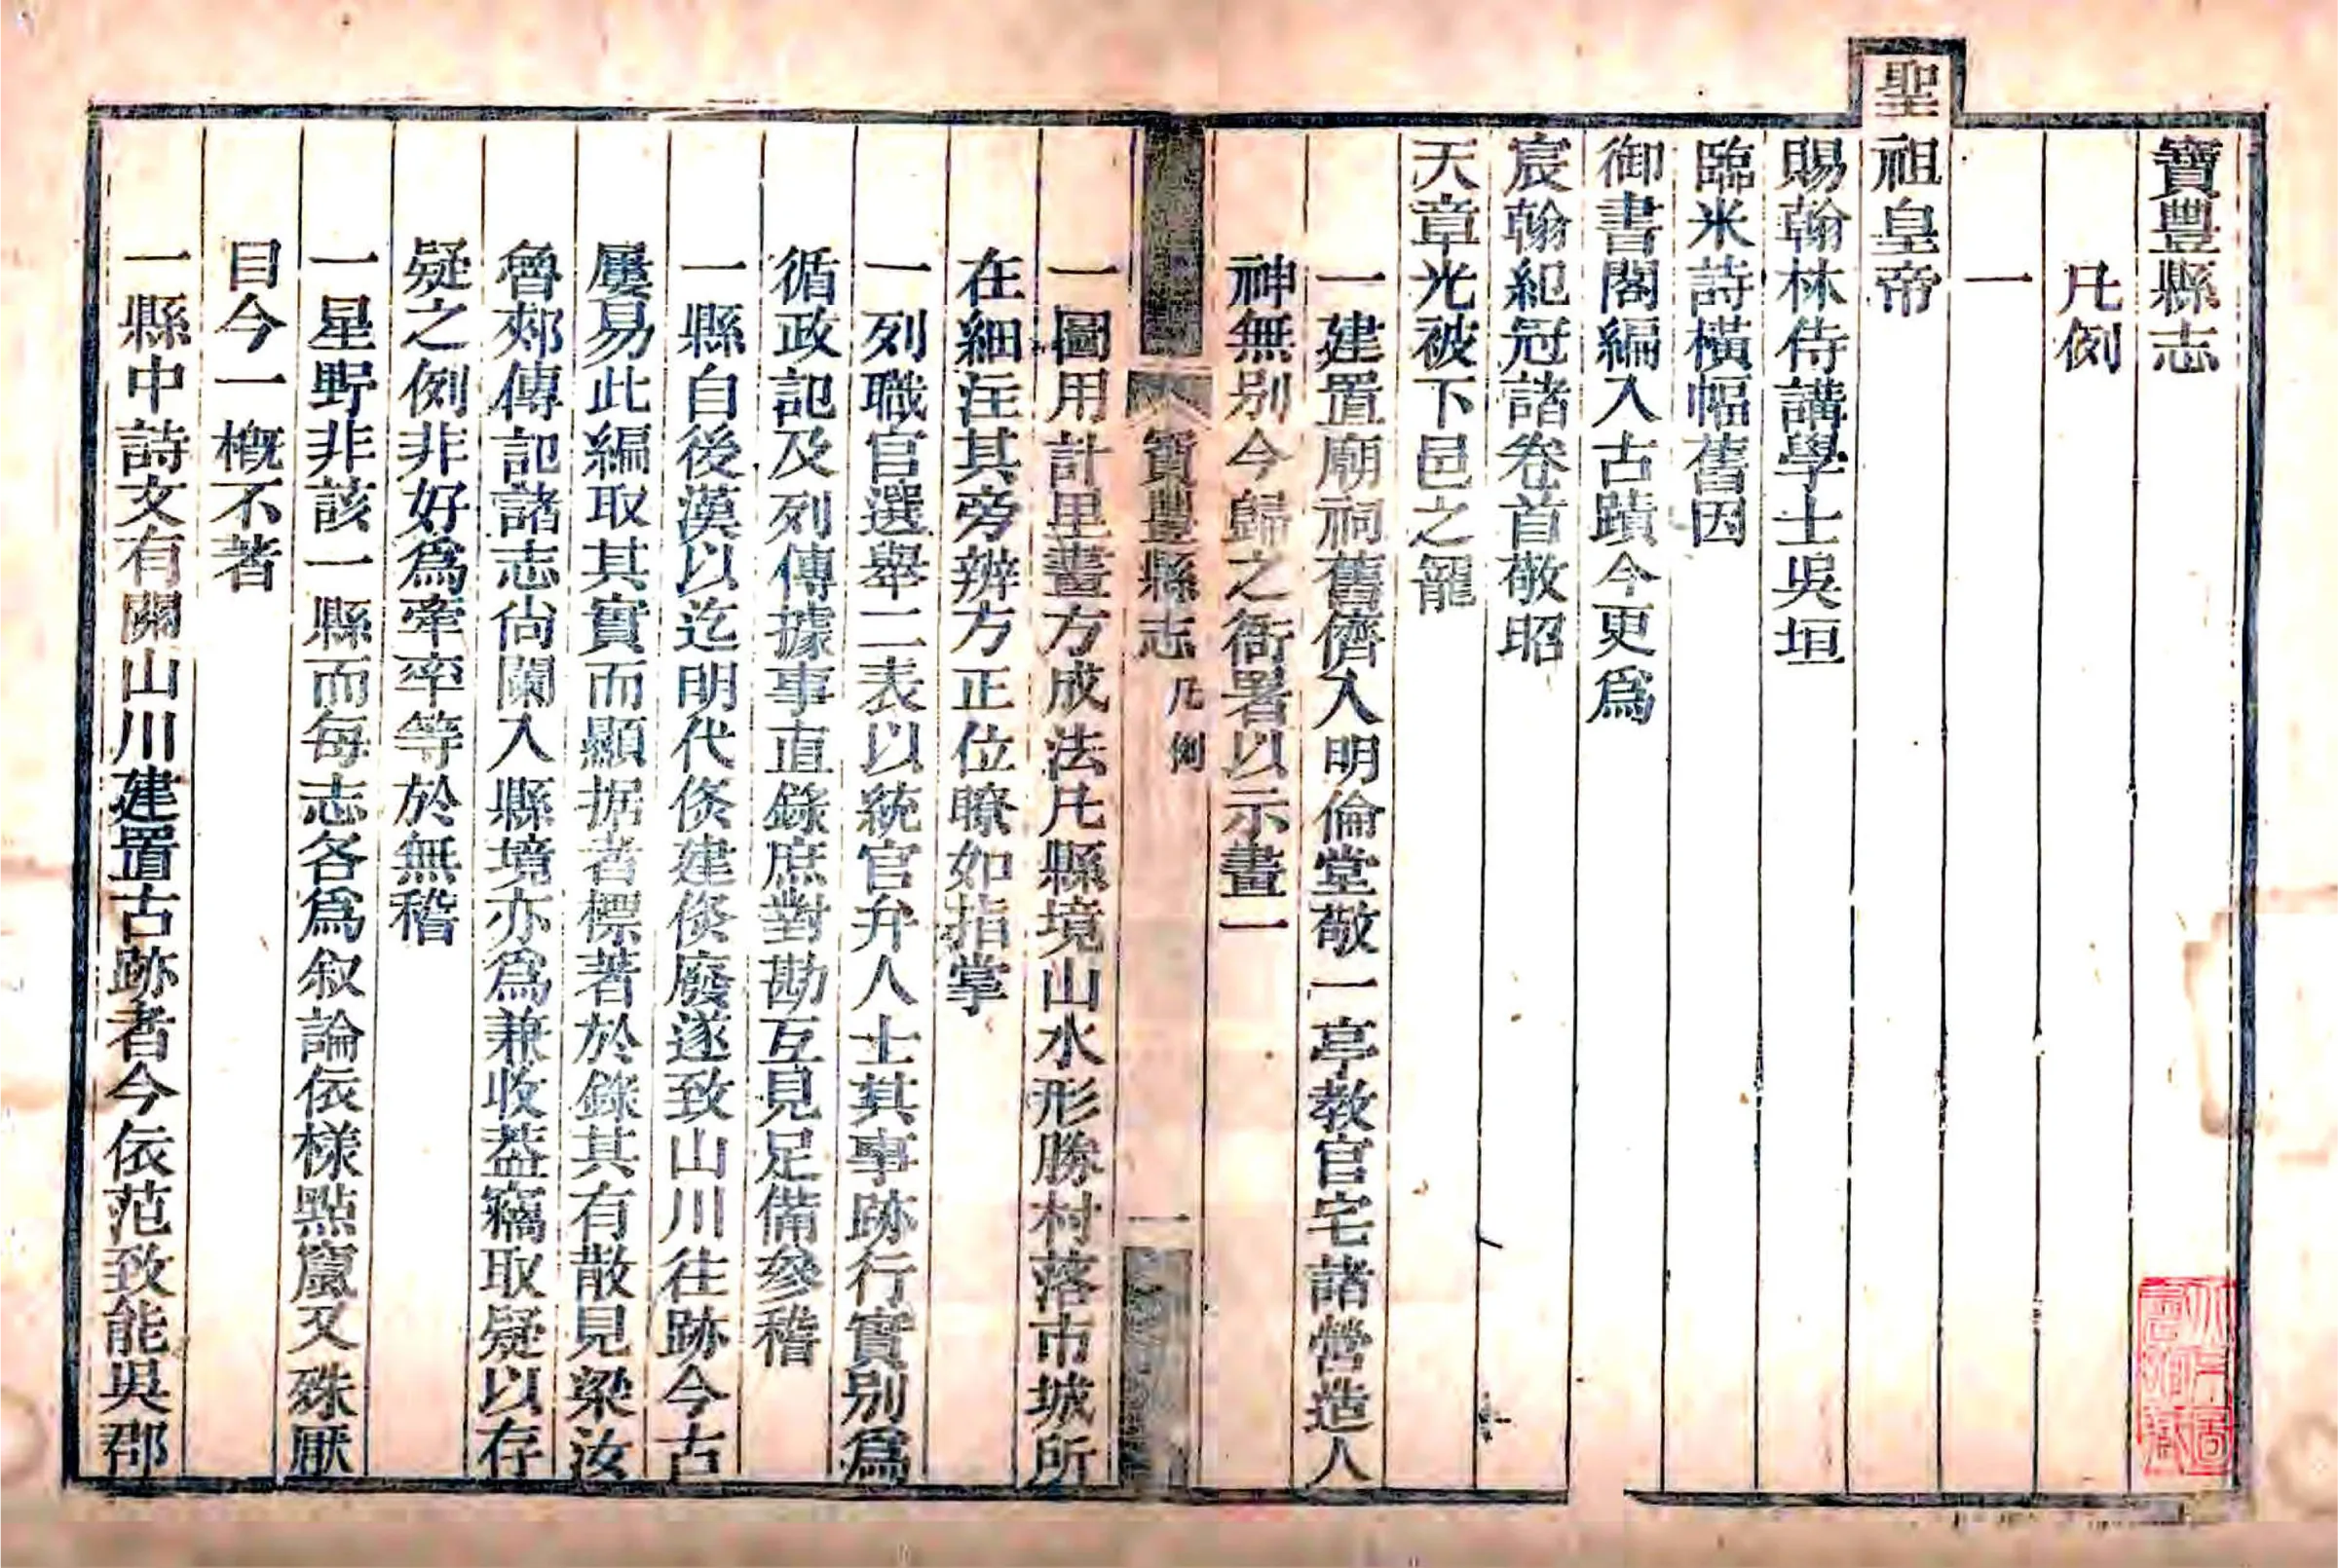 寶豐縣志
凡例
一
聖祖皇帝
賜翰林侍講學士吳垣
臨米詩橫幅舊因
御書閣編入古蹟今更爲
宸翰紀冠諸卷首敬昭
天章光被下邑之寵
一建置廟祠舊儕入明倫堂敬一亭教官宅諸營造人
神無別今歸之衙署以示畫一
寶豐縣志
凡例
一
一圖用計里畫方成法凡縣境山水形勝村落市城所
在細注其旁辨方正位瞭如指掌
一列職官選舉二表以統官弁人士其事跡行實別爲
循政記及列傳據事直錄庶對勘互見足備參稽
一縣自後漢以迄明代倐建倐廢遂致山川往跡今古
屢易此編取其實而顯据者標著於錄其有散見梁汝
魯郟傳記諸志尙闌入縣境亦爲兼收葢竊取疑以存
疑之例非好爲牽率等於無稽
一星野非該一縣而每志各爲叙論依樣點竄又殊厭
目今一槪不著
一縣中詩文有關山川建置古跡者今依范致能吳郡